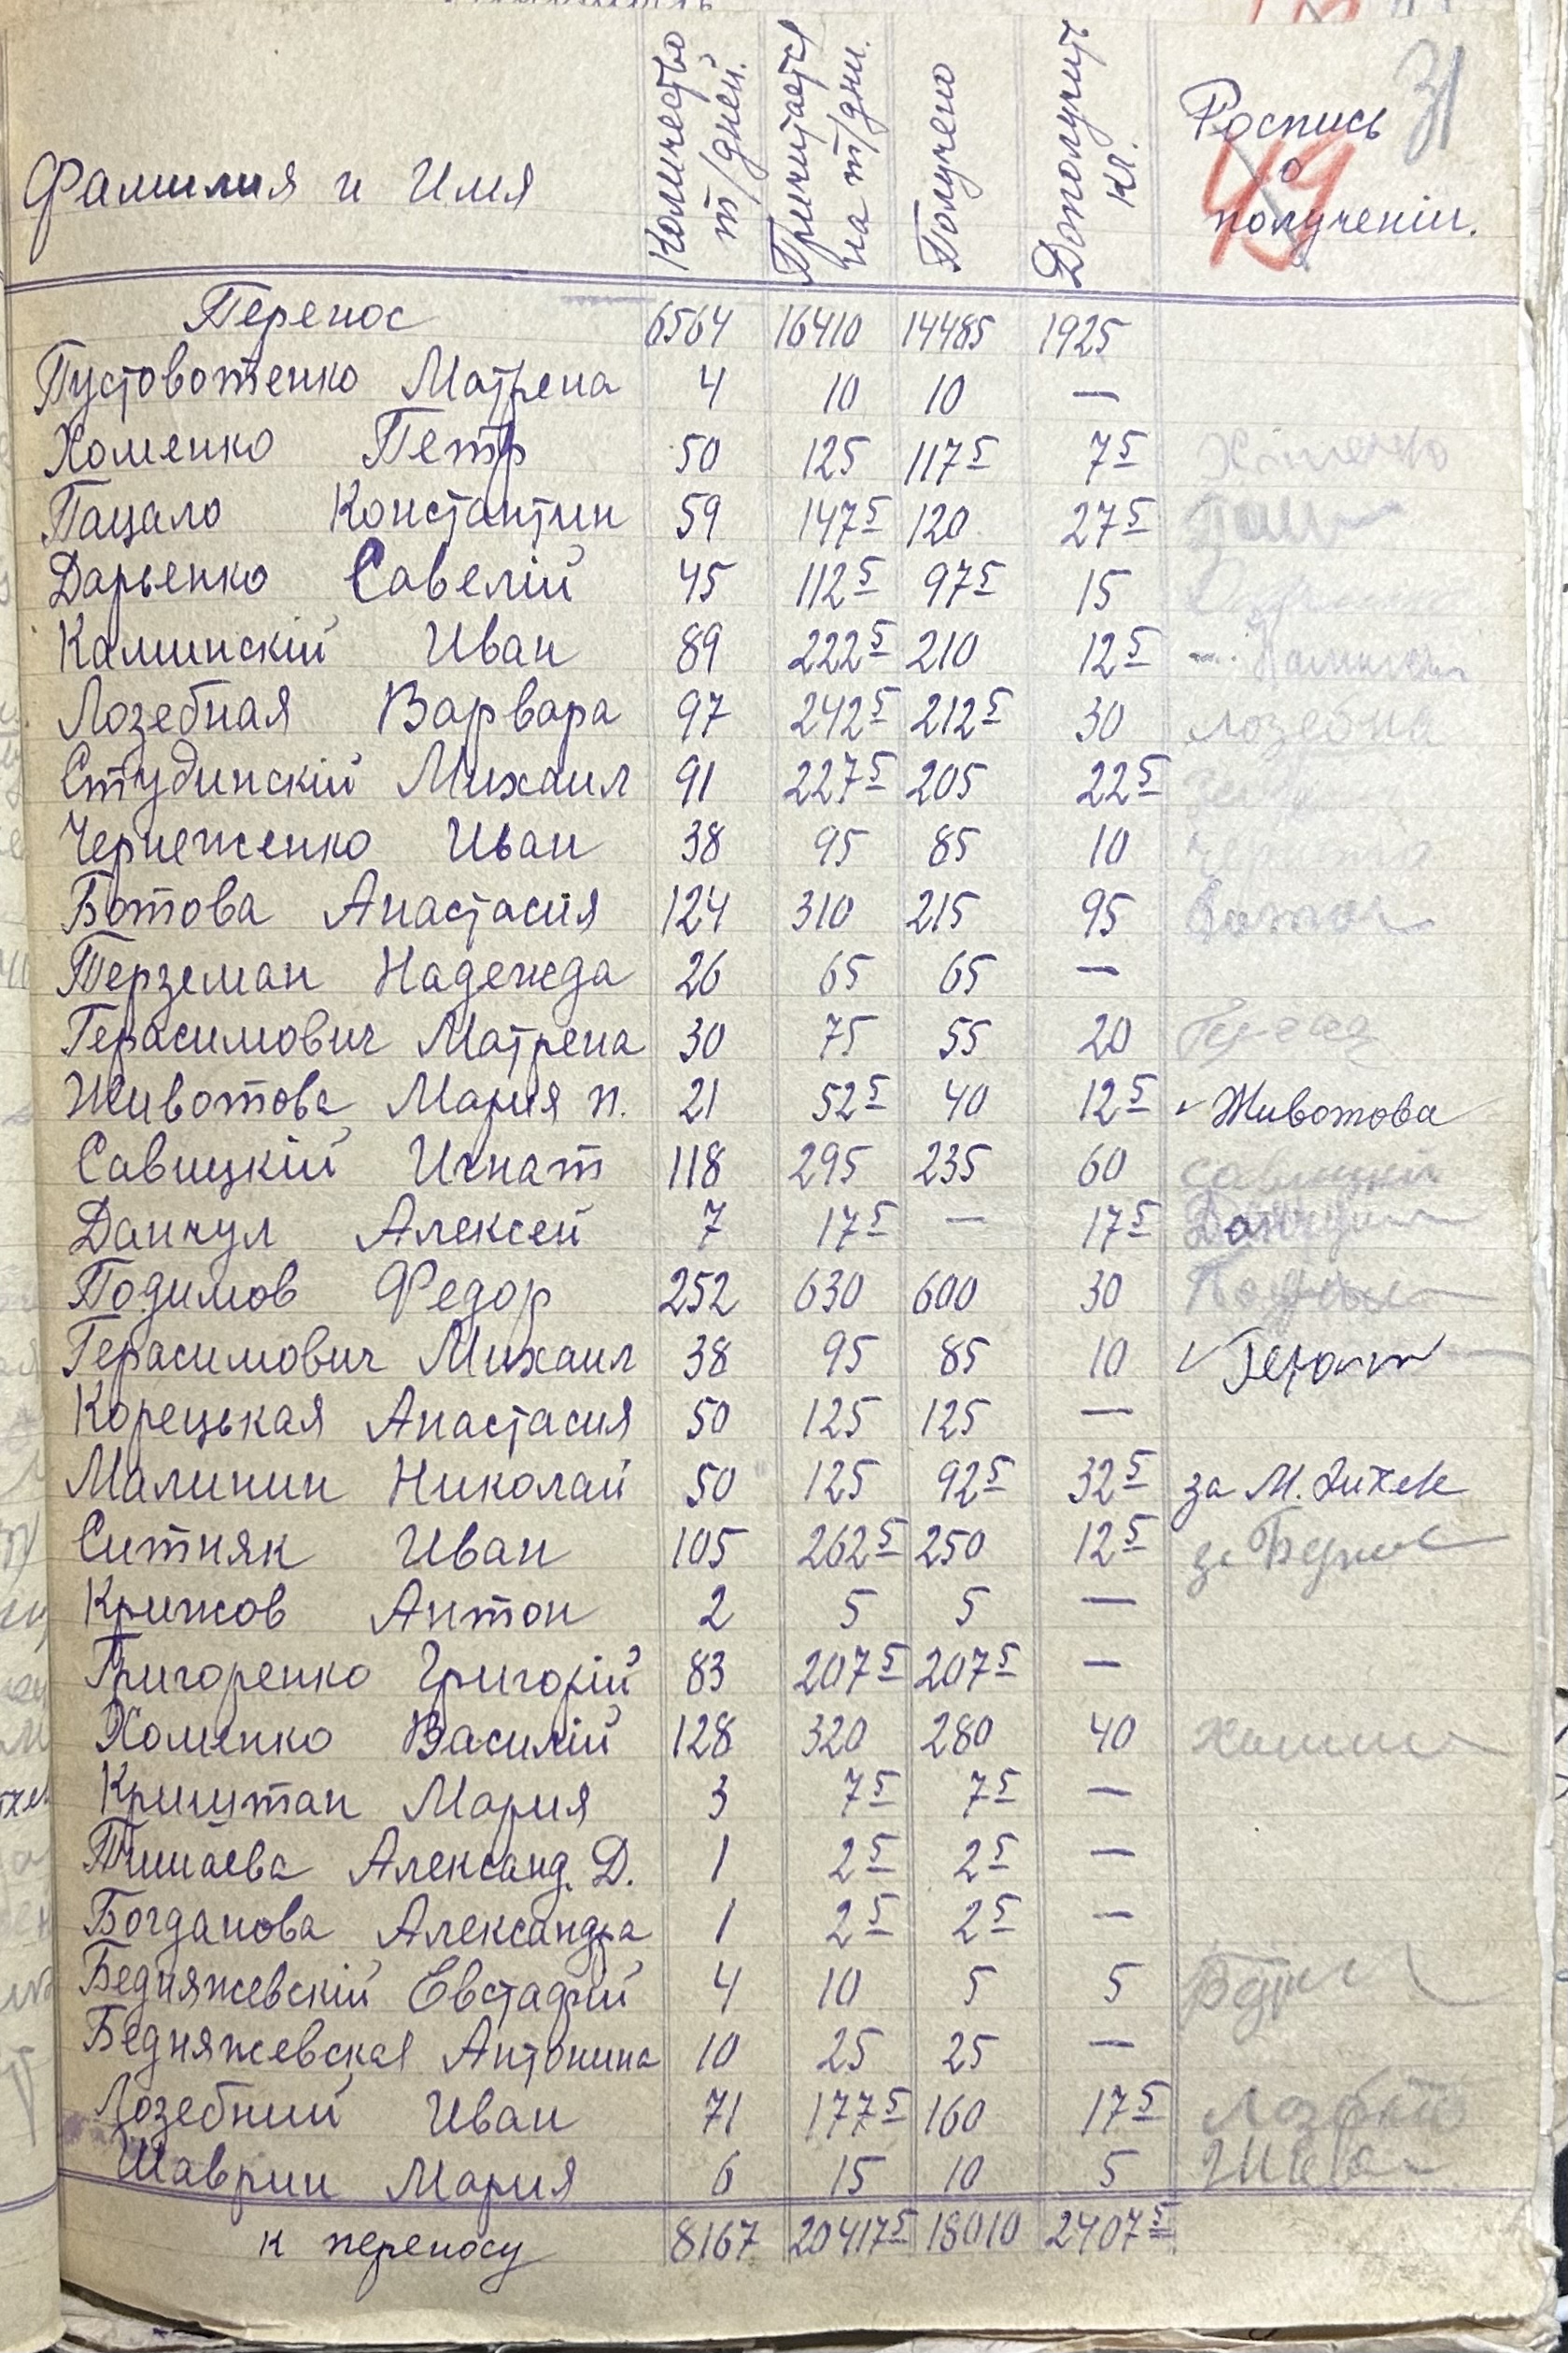 31
49
Фамилия и Имя Количество т/дней. Причитается на т/дни. Получено Дополучит кг. Роспись о полученіи.
Перенос 6564 16410 14485 1925
Пустовотенко Матрена 4 10 10 —
Хоменко Петр 50 125 117 5 7 5
Пацало Константин 59 147 5 120 27 5
Дарьенко Савелій 45 112 5 97 5 15
Каминскій Иван 89 222 5 210 12 5
Лозебная Варвара 97 242 5 212 5 30 Лозебна
Студинскій Михаил 91 227 5 205 22 5
Чернеженко Иван 38 95 85 10
Ботова Анастасия 124 310 215 95
Терземан Надежда 26 65 65 —
Герасимович Матрена 30 75 55 20
Животова Мария п. 21 52 5 40 12 5 Животова
Савицкій Игнат 118 295 235 60 Савицкій
Данчул Алексей 7 17 5 — 17 5
Подимов Федор 252 630 600 30
Герасимович Михаил 38 95 85 10
Корецькая Анастасия 50 125 125 —
Малинин Николай 50 125 92 5 32 5 за М.
Ситняк Иван 105 262 5 250 12 5 за
Крижов Антон 2 5 5 —
Григоренко Григорій 83 207 5 207 5 —
Хоменко Василій 128 320 280 40
Криштап Мария 3 7 5 7 5 —
Александ. Д. 1 2 5 2 5 —
Богданова Александра 1 2 5 2 5 —
Бедняжевскій Евстафий 4 10 5 5
Бедняжевская Антонина 10 25 25 —
Лозебний Иван 71 177 5 160 17 5
Шаврин Мария 6 15 10 5
к переносу 8167 20417 5 18010 2407 5